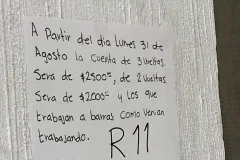 A Partir del dia Lunes 31 de
Agosto la Cuenta de 3 vueltas.
Sera de $2500, de 2 vueltas
Sera de $2000 y Los que
trabajan a barras como venian
trabajando.
R11